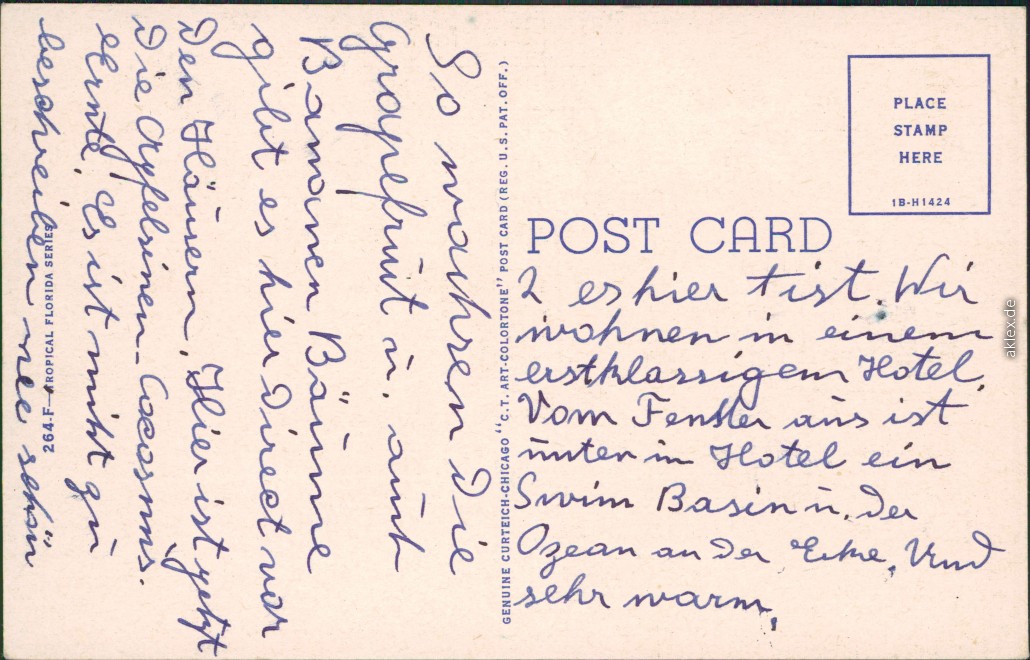 So wachsen die
Grapefruit u. auch
Bananen Bäume
gibt es hier direct vor
den Häusern. Hier ist jetzt
die Apfelsinen-Cocosnus.
Ernte. Es ist nicht zu
beschreiben wie schön
264-F—TROPICAL FLORIDA SERIES
GENUINE CURTEICH-CHICAGO "C.T. ART-COLORTONE" POST CARD (REG. U.S. PAT. OFF.)
PLACE
STAMP
HERE
1B-H1424
POST CARD
2 es hier ist. Wir
wohnen in einem
erstklassigem Hotel.
Vom Fenster aus ist
unten im Hotel ein
Swim Basin u. der
Ozean an der Ecke. Und
sehr warm.
aklex.de